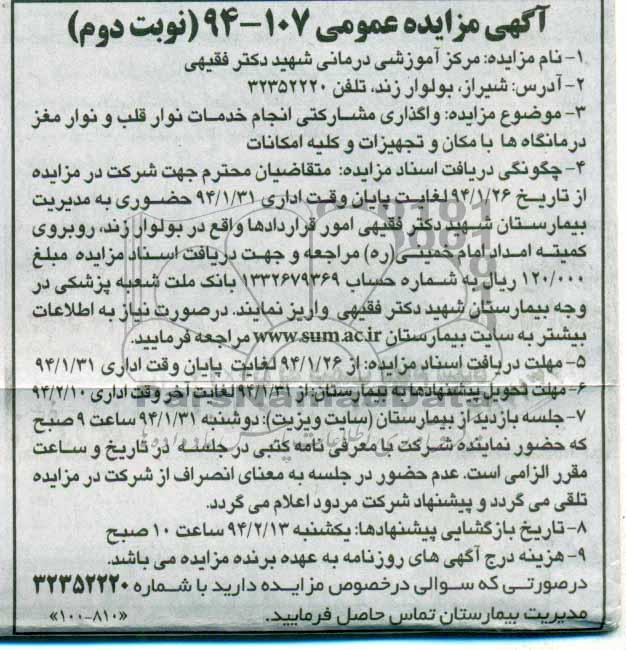 آگهی مزایده عمومی ۱۰۷-۹۴ (نوبت دوم)
۱- نام مزایده: مرکز آموزشی درمانی شهید دکتر فقیهی
۲- آدرس: شیراز، بولوار زند، تلفن ۳۲۳۵۲۲۲۰
۳- موضوع مزایده: واگذاری مشارکتی انجام خدمات نوار قلب و نوار مغز
درمانگاه ها با مکان و تجهیزات و کلیه امکانات
۴- چگونگی دریافت اسناد مزایده: متقاضیان محترم جهت شرکت در مزایده
از تاریخ ۹۴/۱/۲۶ لغایت پایان وقت اداری ۹۴/۱/۳۱ حضوری به مدیریت
بیمارستان شهید دکتر فقیهی امور قراردادها واقع در بولوار زند، روبروی
کمیته امداد امام خمینی (ره) مراجعه و جهت دریافت اسناد مزایده مبلغ
۱۲۰/۰۰۰ ریال به شماره حساب ۱۳۳۲۶۷۹۳۶۹ بانک ملت شعبه پزشکی در
وجه بیمارستان شهید دکتر فقیهی واریز نمایند. درصورت نیاز به اطلاعات
بیشتر به سایت بیمارستان www.sum.ac.ir مراجعه فرمایید.
۵- مهلت دریافت اسناد مزایده: از ۹۴/۱/۲۶ لغایت پایان وقت اداری ۹۴/۱/۳۱
۶- مهلت تحویل پیشنهادها به بیمارستان از ۹۴/۱/۳۱ لغایت آخر وقت اداری ۹۴/۲/۱۰
۷- جلسه بازدید از بیمارستان (سایت ویزیت): دوشنبه ۹۴/۱/۳۱ ساعت ۹ صبح
که حضور نماینده شرکت با معرفی نامه کتبی در جلسه در تاریخ و ساعت
مقرر الزامی است. عدم حضور در جلسه به معنای انصراف از شرکت در مزایده
تلقی می گردد و پیشنهاد شرکت مردود اعلام می گردد.
۸- تاریخ بازگشایی پیشنهادها: یکشنبه ۹۴/۲/۱۳ ساعت ۱۰ صبح
۹- هزینه درج آگهی های روزنامه به عهده برنده مزایده می باشد.
درصورتی که سوالی درخصوص مزایده دارید با شماره ۳۲۳۵۲۲۲۰
مدیریت بیمارستان تماس حاصل فرمایید. «۸۱۰-۱۰۰»